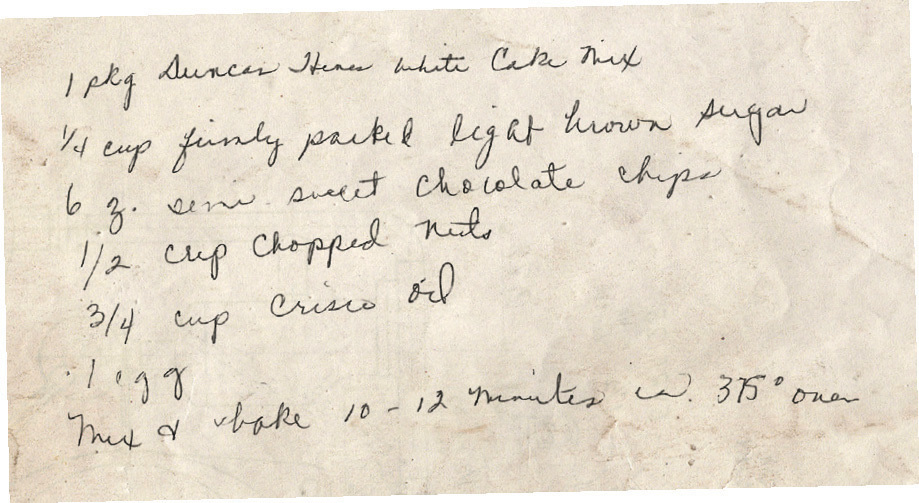 1 pkg Duncan Hines white Cake Mix
1/4 cup firmly packed light brown sugar
6 oz. semi sweet chocolate chips
1/2 cup chopped nuts
3/4 cup Crisco oil
1 egg
Mix & bake 10-12 minutes in 375° oven